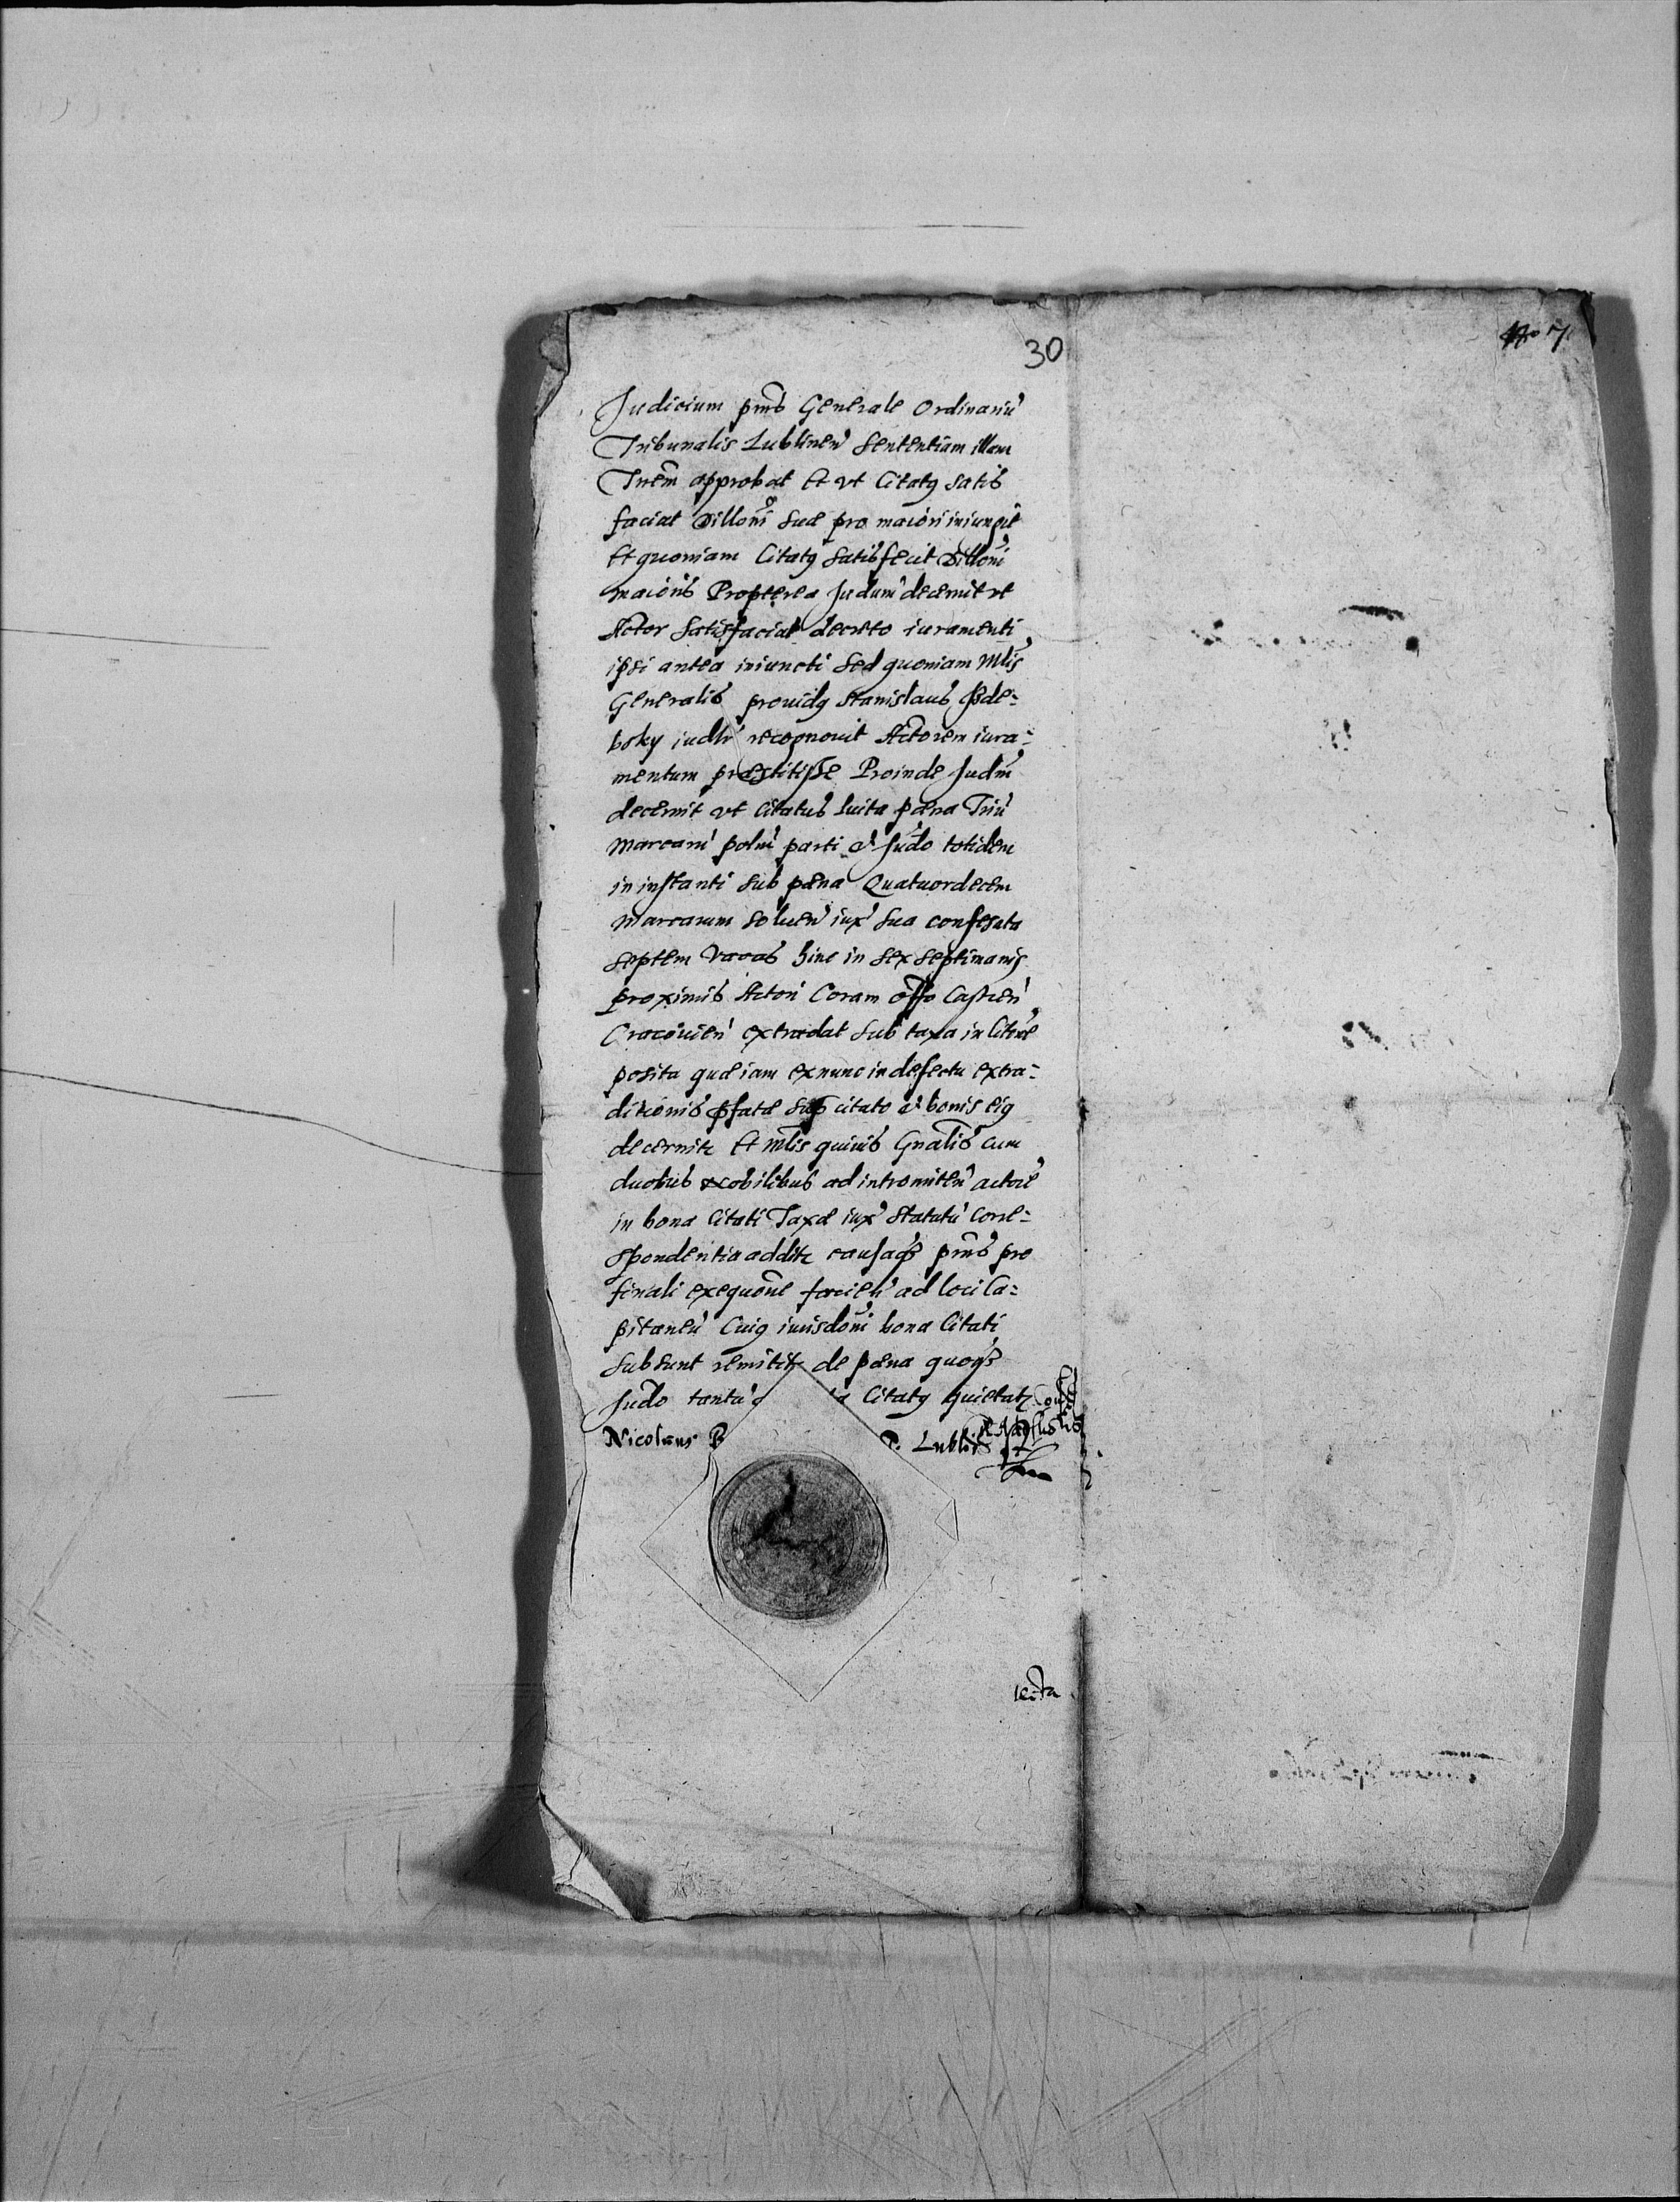 30
No 7.
Judicium pns Generale Ordinariu
Tribunalis Lublinen Sententiam illam
Trem approbat Et vt Citatus satis
faciat Dilloni suae pro maiori iniungit
Et quoniam Citatus satisfecit Dilloni
maioris Propterea Judum decernit vt
Actor Satisfaciat decreto iuramenti
ipsi antea iniuncti Sed quoniam Mlis
Generalis prouidus Stanislaus
bsky iudlr recognouit Actorem iura=
mentum praestitisse Proinde Judm
decernit vt Citatus luita paena Triu
Marcaru polm parti et Judo totidem
in instanti sub paena Quatuordecem
Marcarum soluen iux sua confesata
septem vacas hinc in sex septimanis
proximis Actori Coram offo Castren
Cracouien extradat sub taxa in litere
posita quae iam exnunc in defectu extra=
ditionis pfatae sup citato et bonis eius
decernitr Et Mlis quiuis Gnalis cum
duobus nobilibus ad intromitten actore
in bona Citati Taxae iux statutu Corre=
spondentia additr causaqs pns pro
finali exequone facien ad loci Ca=
pitaneu Cuius iurisdoni bona Citati
subsunt remititr de paena quoqs
Judo tanta Citatus quietatr
Nicolaus P. Lublin
lecta